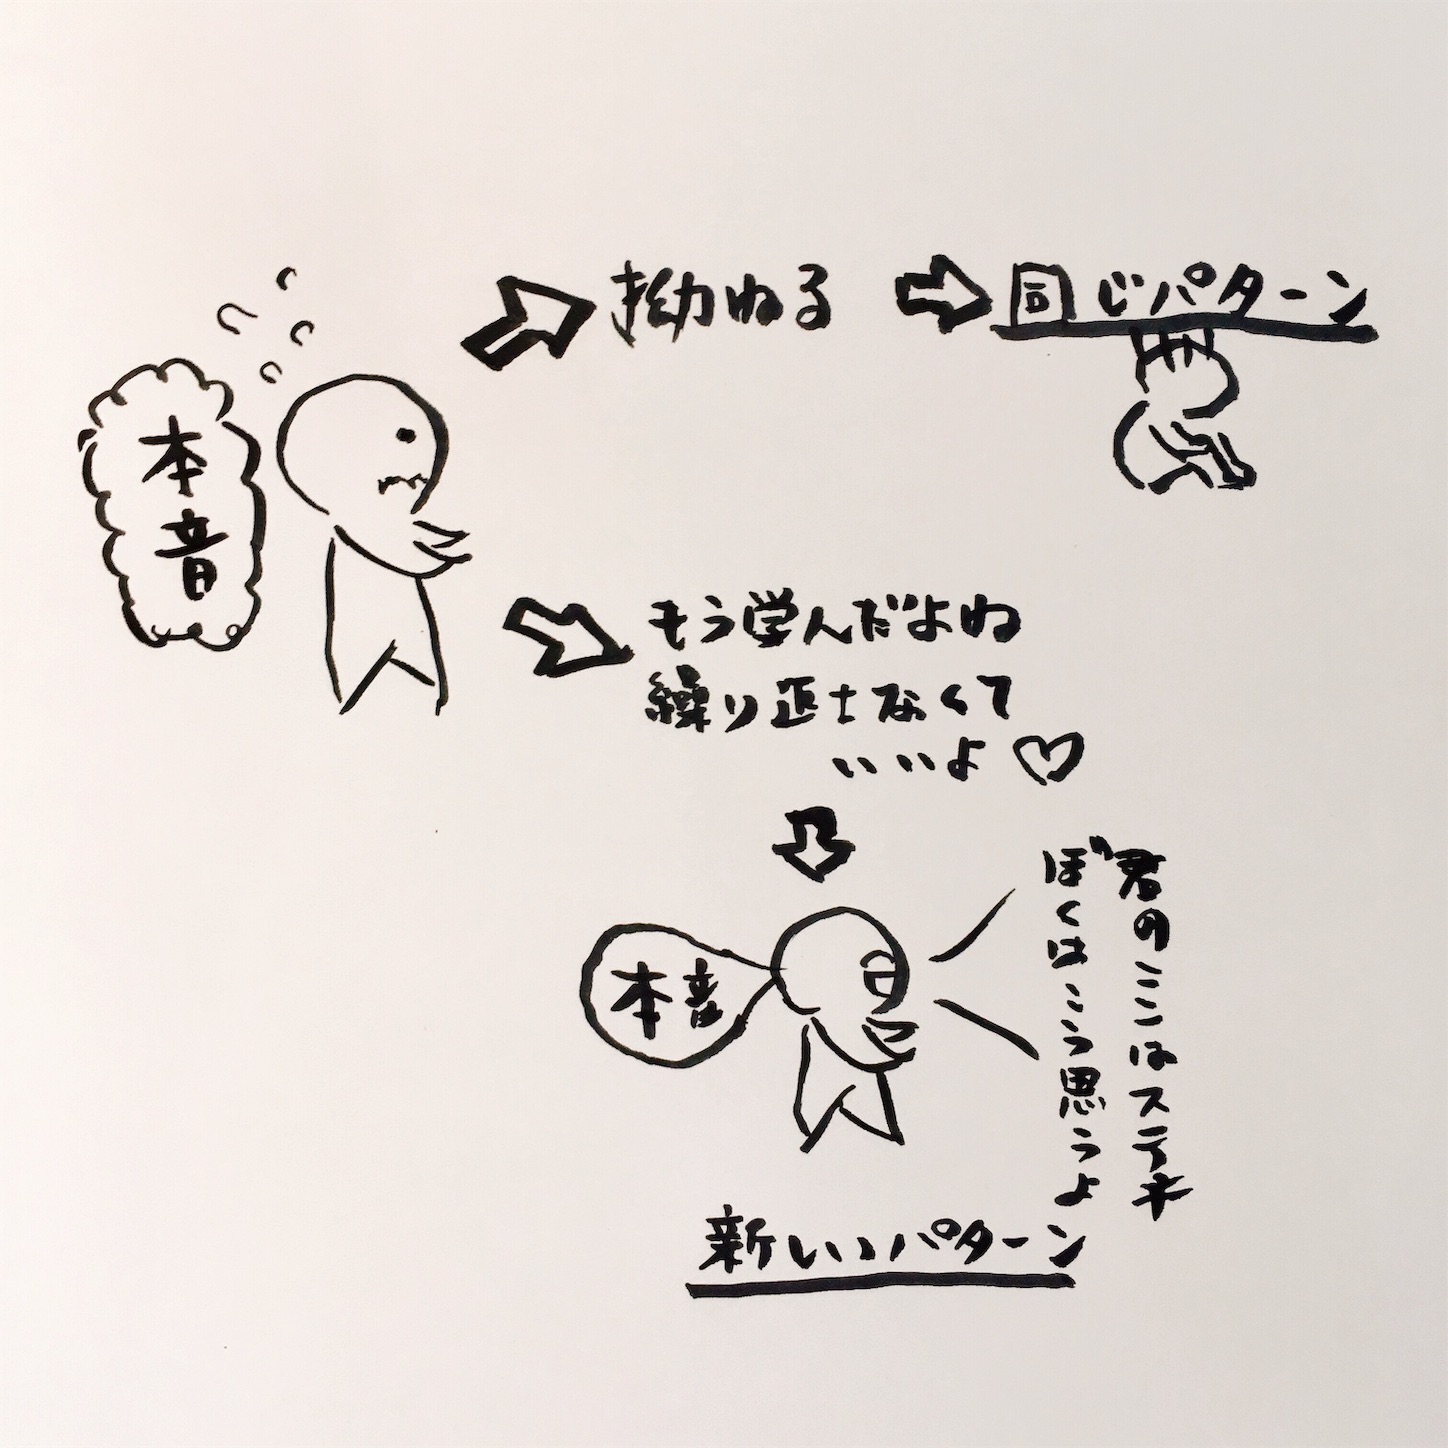 本音
拗ねる
同じパターン
もう学んだよね
繰り返さなくて
いいよ♡
本音
君のここはステキ
ぼくはこう思うよ
新しいパターン